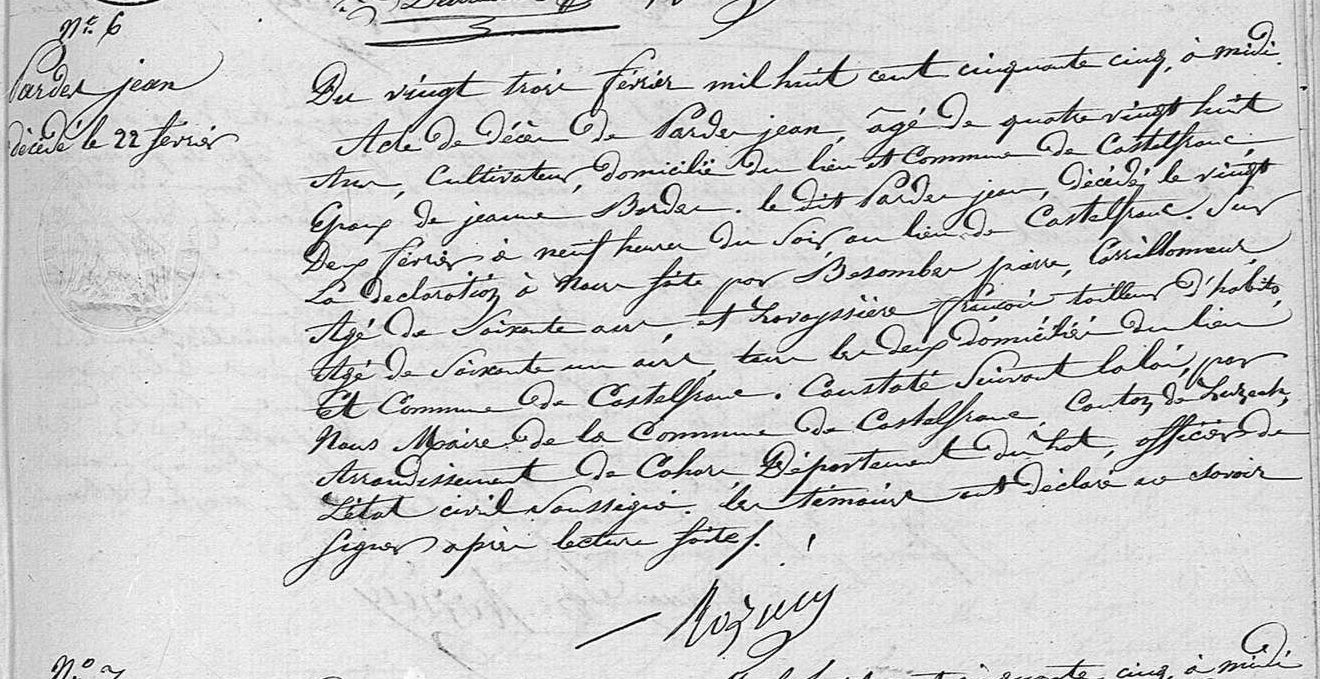 N.° 6
Pardes jean
décédé le 22 février
Du vingt trois février mil huit cent cinquante cinq, à midi.
Acte de décès de Pardes jean, âgé de quatre vingt huit
Ans, Cultivateur, domicilié du lieu et Commune de Castelfranc,
Epoux de jeanne Bordes. le dit Pardes jean, décédé le vingt
Deux février à neuf heures du Soir, au lieu de Castelfranc. Sur
La declaration à Nous faite par Besombes pierre, Carrillonneur,
Agé de Soixante ans, et Lovayssière francois tailleur d'habits,
Agé de Soixante un ans, tous les deux domiciliés du lieu
Et Commune de Castelfranc. Constaté Suivant la loi, par
Nous Maire de la Commune de Castelfranc, Canton de Luzech,
Arrondissement de Cahors Département du Lot, officier de
L'état civil Soussigné. les témoins ont déclaré ne savoir
Signer après lecture faite/.
N.° 7
cinq, à midi